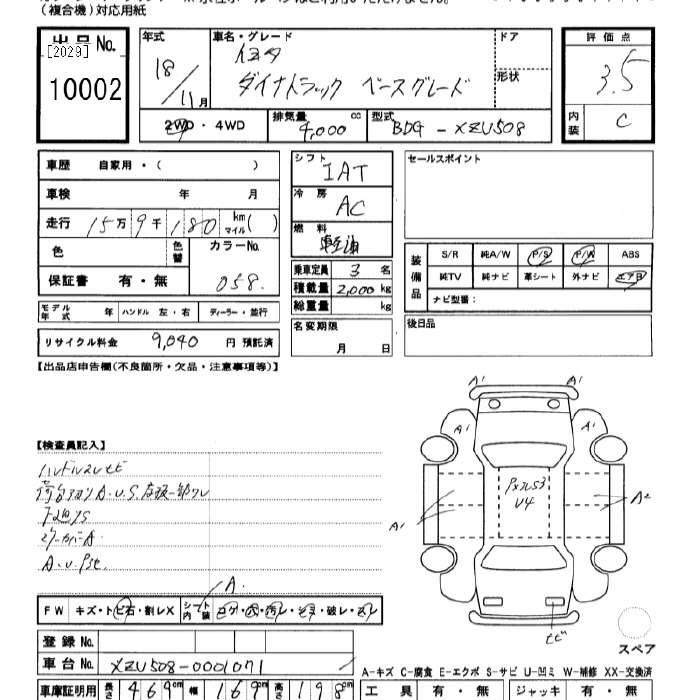 （複合機）対応用紙
出品 No.
[2029]
10002
年式
18/11月
車名・グレード
トヨタ
ダイナトラック ベースグレード
ドア
形状
評価点
3.5
内装
C
2WD・4WD
排気量 4,000 cc
型式 BDG-XZU508
車歴 自家用・（ ）
車検 年 月
走行 15万9千180 km マイル( )
色
色替
カラーNo.
058
保証書 有・無
モデル年式 年 ハンドル 左・右 ディーラー・並行
リサイクル料金 9,040 円 預託済
シフト
IAT
冷房
AC
燃料
軽油
乗車定員 3 名
積載量 2,000 kg
総重量 kg
名変期限
月 日
セールスポイント
装備品
S/R 純A/W P/S P/W ABS
純TV 純ナビ 革シート 外ナビ エアB
ナビ型番：
後日品
【出品店申告欄(不良箇所・欠品・注意事項等)】
【検査員記入】
ハンドルスレ
下廻りS
A.U.
A1 A1
A1 A1
A1
A2
U4
ヒビ
スペア
A.
FW キズ・トビ石・割レX
シート内装 コゲ・穴・汚レ・破レ
登録 No.
車台 No. XZU508-0001071
A-キズ C-腐食 E-エクボ S-サビ U-凹ミ W-補修 XX-交換済
車庫証明用 長さ 469cm 幅 169cm 高さ 198cm
工具 有・無 ジャッキ 有・無